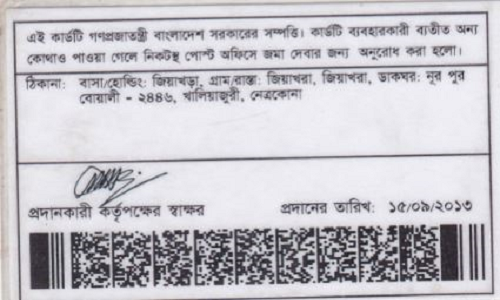 এই কার্ডটি গণপ্রজাতন্ত্রী বাংলাদেশ সরকারের সম্পত্তি। কার্ডটি ব্যবহারকারী ব্যতীত অন্য
কোথাও পাওয়া গেলে নিকটস্থ পোস্ট অফিসে জমা দেবার জন্য অনুরোধ করা হলো।
ঠিকানা: বাসা/হোল্ডিং: জিয়াখড়া, গ্রাম/রাস্তা: জিয়াখরা, জিয়াখরা, ডাকঘর: নূর পুর
বোয়ালী - ২৪৪৬, খালিয়াজুরী, নেত্রকোনা
প্রদানকারী কর্তৃপক্ষের স্বাক্ষর প্রদানের তারিখ: ১৫/০৯/২০১৩